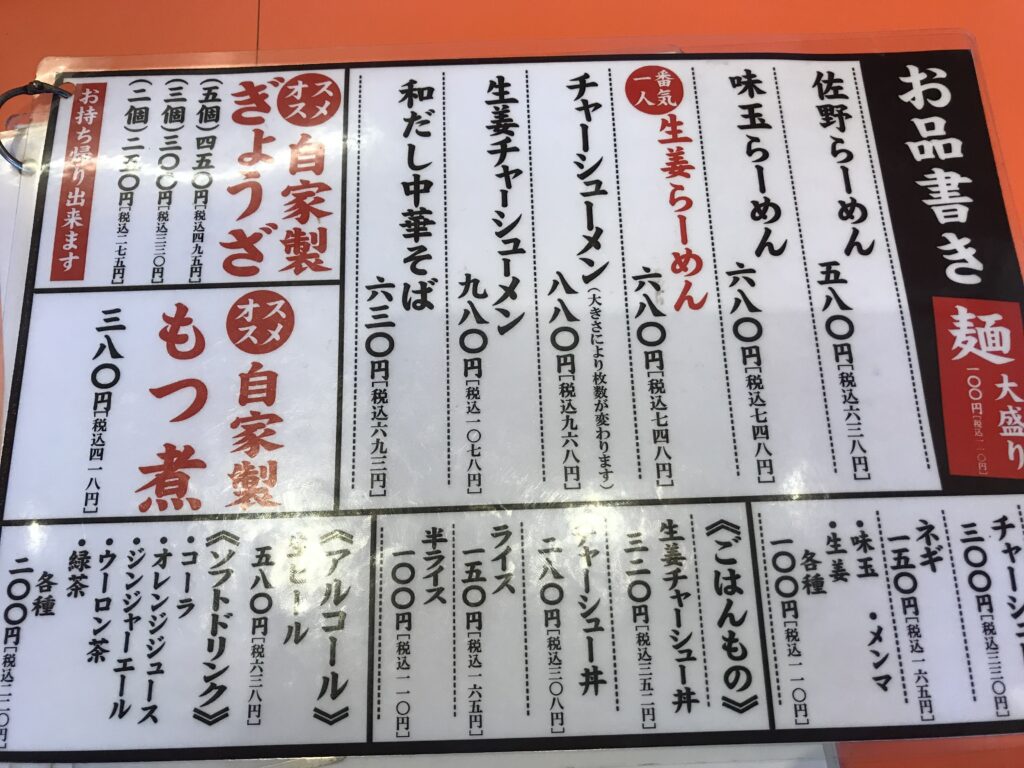 お品書き
麺大盛り
一〇〇円[税込一一〇円]
佐野らーめん
五八〇円[税込六三八円]
味玉らーめん
六八〇円[税込七四八円]
一番人気
生姜らーめん
六八〇円[税込七四八円]
チャーシューメン(大きさにより枚数が変わります)
八八〇円[税込九六八円]
生姜チャーシューメン
九八〇円[税込一〇七八円]
和だし中華そば
六三〇円[税込六九三円]
オススメ
自家製
ぎょうざ
(五個)四五〇円[税込四九五円]
(三個)三〇〇円[税込三三〇円]
(二個)二五〇円[税込二七五円]
お持ち帰り出来ます
オススメ
自家製
もつ煮
三八〇円[税込四一八円]
三〇〇円[税込三三〇円]
ネギ
一五〇円[税込一六五円]
・味玉 ・メンマ
・生姜
各種
一〇〇円[税込一一〇円]
《ごはんもの》
生姜チャーシュー丼
三二〇円[税込三五二円]
チャーシュー丼
二八〇円[税込三〇八円]
ライス
一五〇円[税込一六五円]
半ライス
一〇〇円[税込一一〇円]
《アルコール》
生ビール
五八〇円[税込六三八円]
《ソフトドリンク》
・コーラ
・オレンジジュース
・ジンジャーエール
・ウーロン茶
・緑茶
各種
二〇〇円[税込二二〇円]